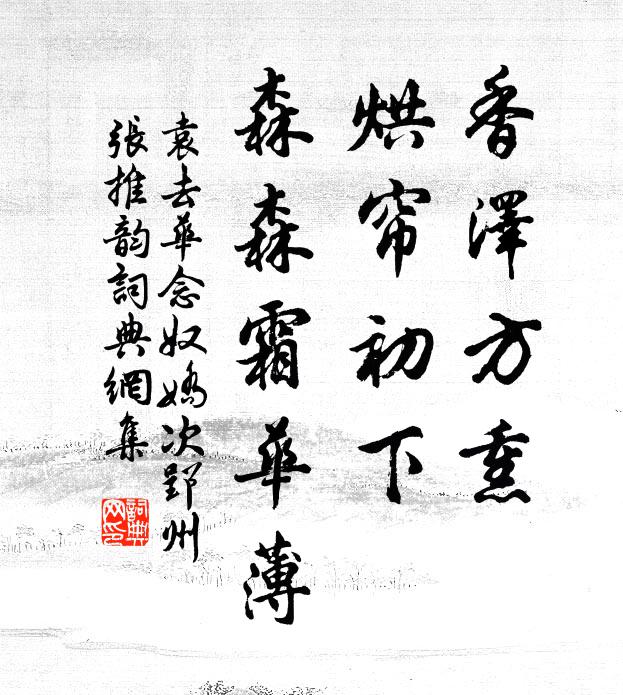 香澤方熏
烘帘初下
森森霜華薄
袁去華念奴嬌次郢州
張推韵詞典網集
詞典網印